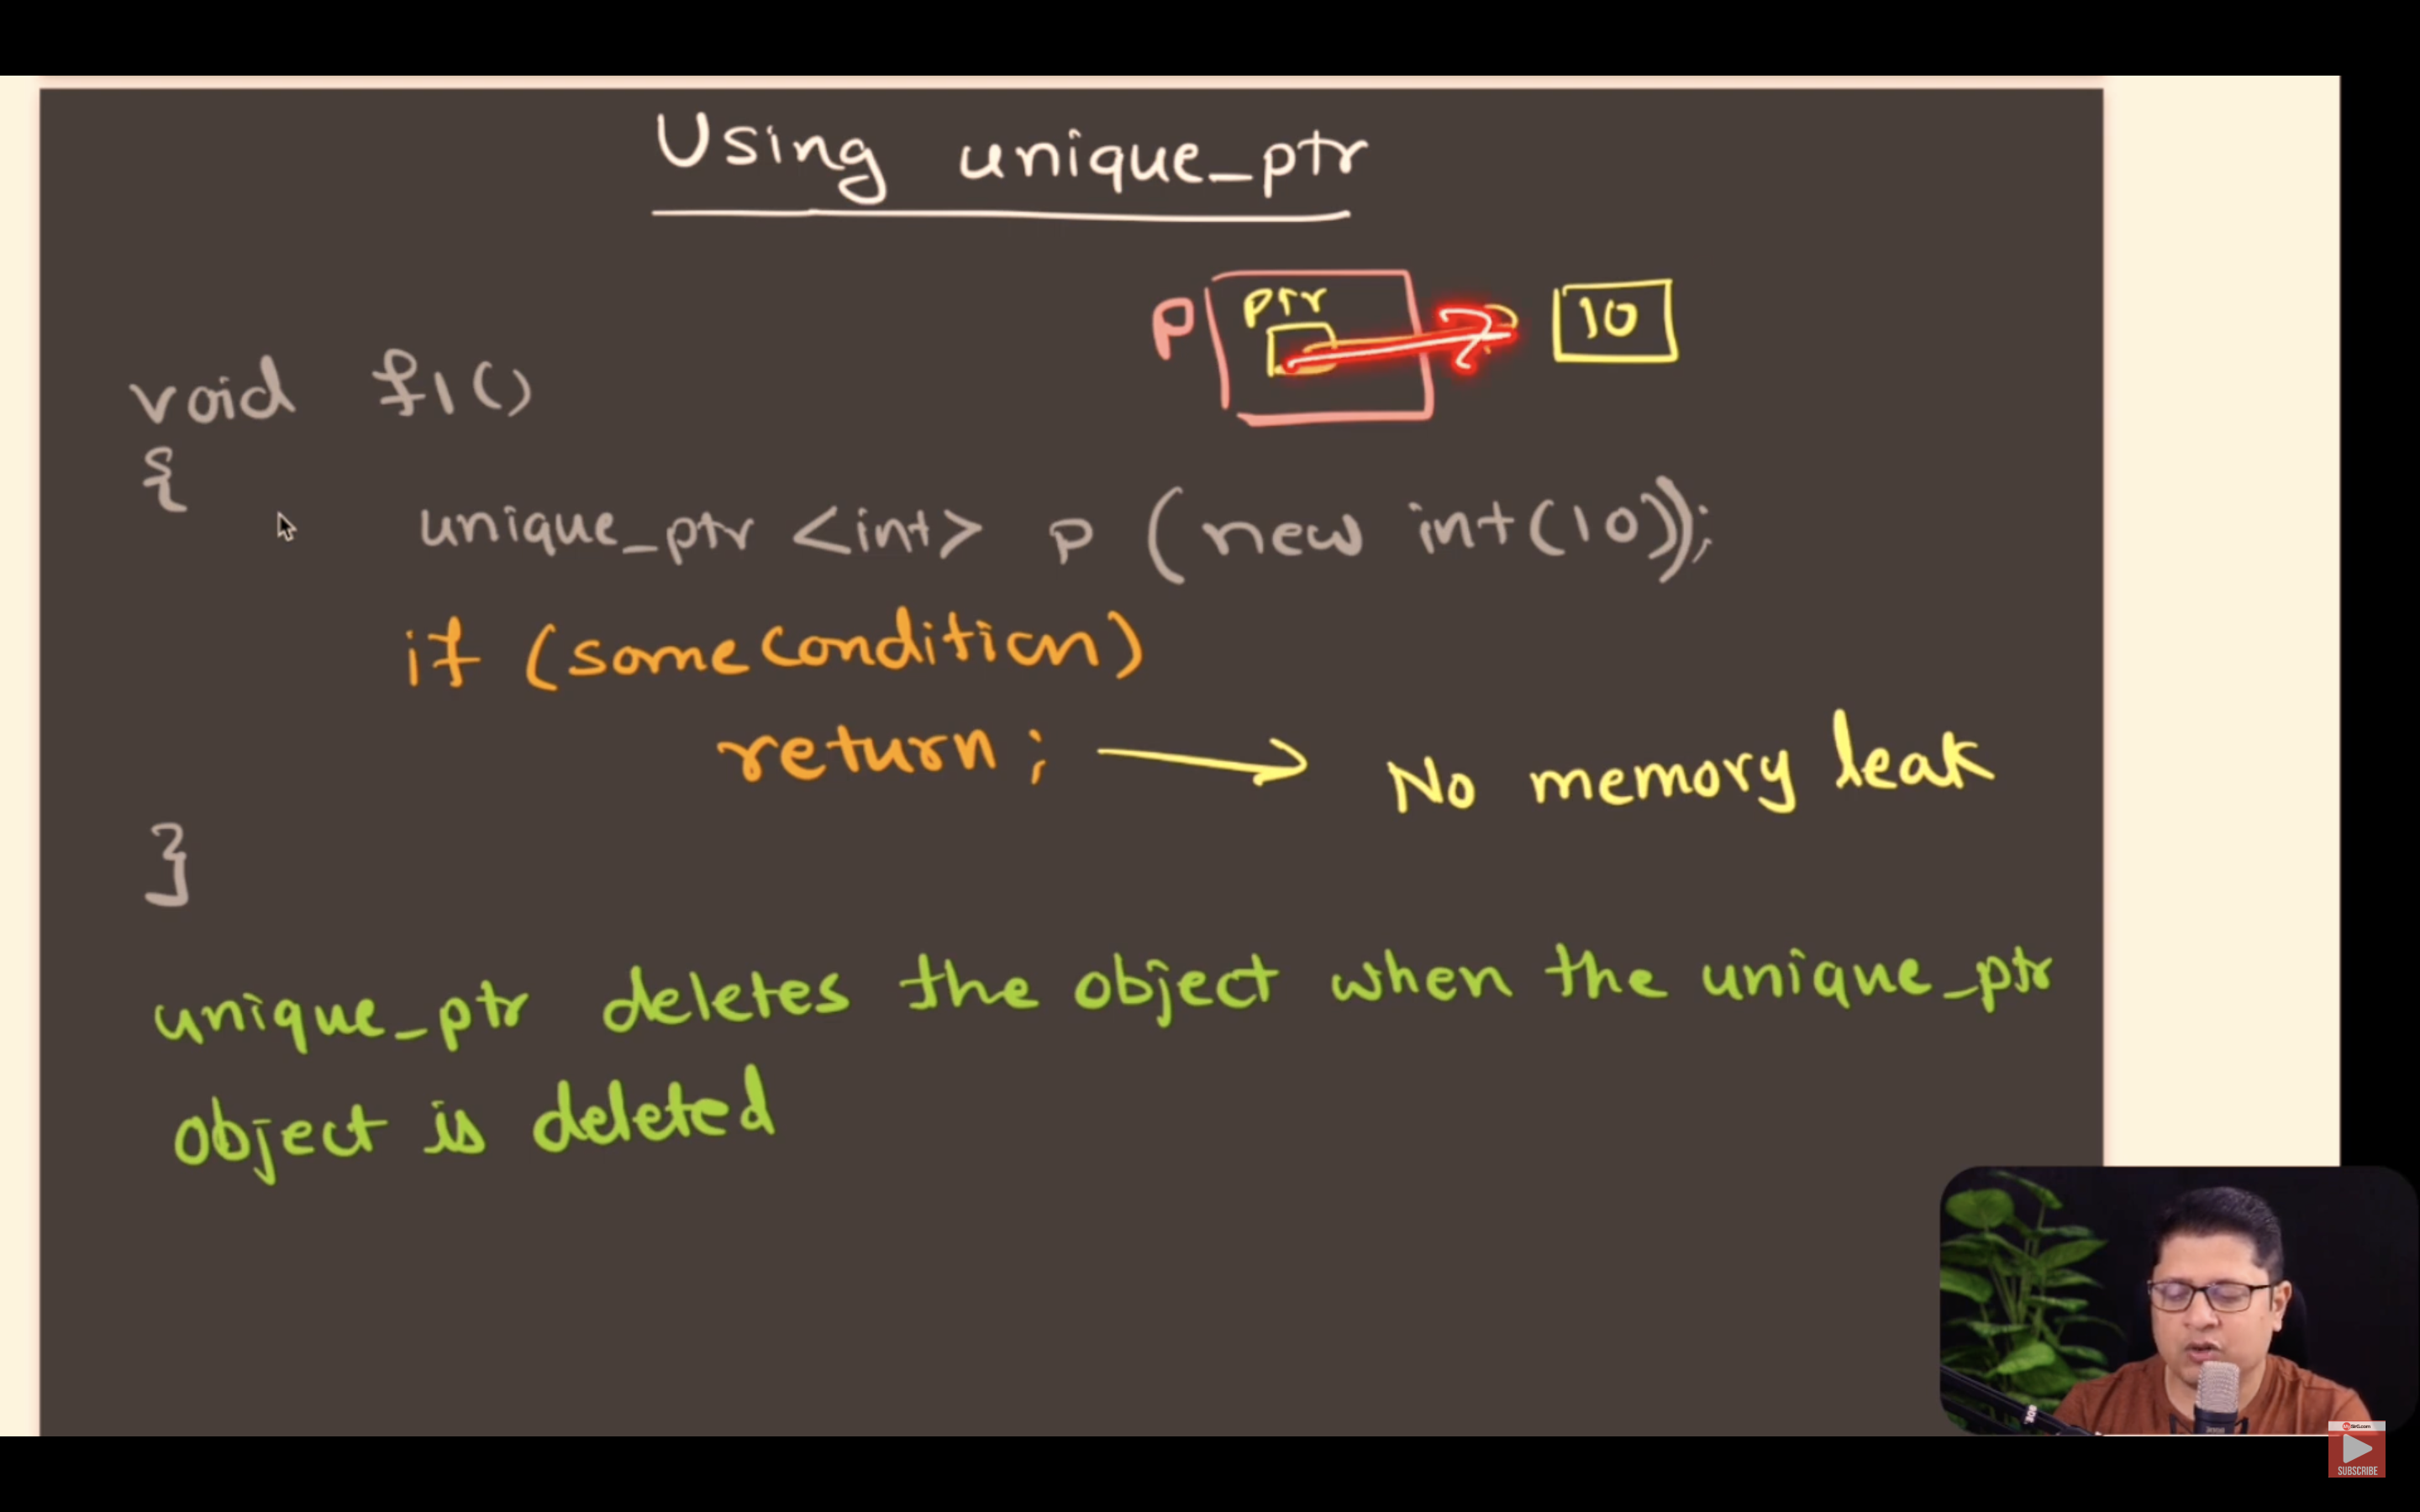 Using unique_ptr
p ptr 10
void f1()
{
unique_ptr <int> p (new int(10));
if (some condition)
return; → No memory leak
}
unique_ptr deletes the object when the unique_ptr
object is deleted
SUBSCRIBE